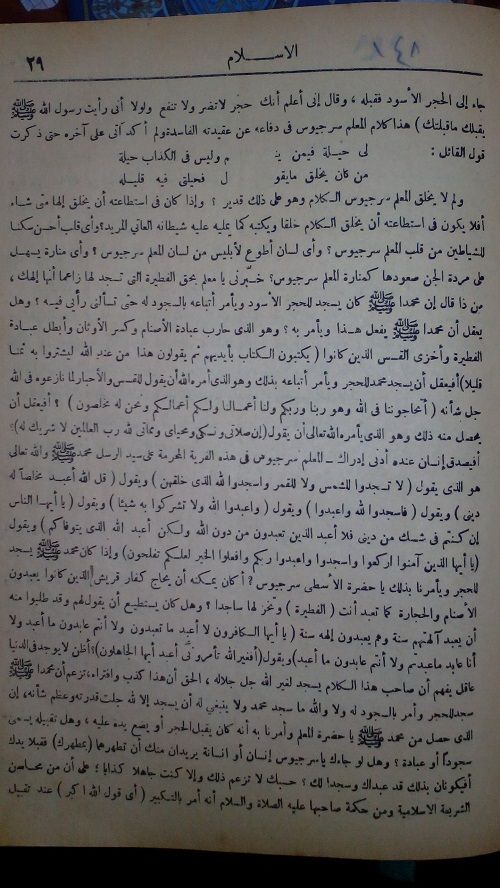 الاســـلام
٢٩
جاء إلى الحجر الأسود فقبله ، وقال إنى أعلم أنك حجر لاتضر ولا تنفع ولولا أنى رأيت رسول الله ﷺ
يقبلك ماقبلتك ) هذا كلام المعلم سرجيوس فى دفاعه عن عقيدته الفاسدة ولم أكد آتى على آخره حتى ذكرت
قول القائل :
لى حيـلة فيمن ينـ م وليس فى الكذاب حيلة
من كان يخلق مايقو ل فحيلتى فيه قليـله
ولم لا يخلق المعلم سرجيوس الـكلام وهو على ذلك قدير ؟ وإذا كان فى استطاعته أن يخلق إلها متى شـاء
أفلا يكون فى استطاعته أن يخلق الـكلام خلقا ويكتبه كما يمليه عليه شيطانه العاتى المريد؟ وأى قلب أحسن سكنا
للشياطين من قلب المعلم سرجيوس ؟ وأى لسان أطوع لأبليس من لسان المعلم سرجيوس ؟ وأى منارة يسهـل
على مردة الجن صعودها كمنارة المعلم سرجيوس؟ خـبّرنى يا معلم بحق الفطيرة التى تسجد لها زاعما أنها إلهك ،
من ذا قال إن محمدا ﷺ كان يسجد للحجر الأسود ويأمر أتباعه بالسجود له حتى تسألنى رأيى فيـه ؟ وهل
يعقل أن محمدا ﷺ يفعل هـذا ويأمر به ؟ وهو الذى حارب عبادة الأصنام وكسر الأوثان وأبطل عبـادة
الفطيرة وأخزى القسس الذين كانوا ( يكتبون الكتاب بأيديهم ثم يقولون هذا من عند الله ليشتروا به ثمنـا
قليلا) أفيعقل أن يسجد محمد للحجر ويأمر أتباعه بذلك وهو الذى أمره الله أن يقول للقسس والأحبار لما نازعوه فى الله
جل شأنه ( أتحاجوننا فى الله وهو ربنا وربكم ولنا أعمـالنا ولـكم أعمالـكم ونحن له مخلصون ) ؟ أفيعقل أن
يحصل منه ذلك وهو الذى يأمره الله تعالى أن يقول (إن صلاتى ونسكى ومحياى ومماتى لله رب العالمين لا شريك له)؟
أفيصدق إنسـان عنده أدنى إدراك ـ المعلم سرجيوس فى هذه الفرية المجرمة على سيد الرسل محمد ﷺ والله تعالى
هو الذى يقول ( لا تسجدوا للشمس ولا للقمر واسجدوا لله الذى خلقهن ) ويقول ( قل الله أعبـد مخلصا له
دينى ) ويقول ( فاسجدوا لله واعبدوا ) ويقول ( واعبدوا الله ولا تشركوا به شيئا ) ويقول ( يا أيهـا الناس
إن كنتم فى شـك من دينى فلا أعبد الذين تعبدون من دون الله ولـكن أعبد الله الذى يتوفاكم ) ويقول
(يا أيها الذين آمنوا اركعوا واسجدوا واعبدوا ربكم وافعلوا الخير لعلـكم تفلحون) وإذا كان محمد ﷺ يسجد
للحجر ويأمرنا بذلك يا حضرة الأسطى سرجيوس ؟ أكان يمكنه أن يحاج كفار قريش الذين كانوا يعبدون
الأصنام والحجارة كما تعبد أنت ( الفطيرة ) ونخر لها ساجدا ؟ وهل كان يستطيع أن يقول لهم وقد طلبوا منه
أن يعبد آلهتهم سنة وهم يعبدون إلهه سنة ( يا أيها الـكافرون لا أعبد ما تعبدون ولا أنتم عابدون ما أعبد ولا
أنا عابد ماعبدتم ولا أنتم عابدون ما أعبد) ويقول (أفغير الله تأمرونّى أعبد أيها الجاهلون)؟ أظن لا يوجد فى الدنيا
عاقل يفهم أن صاحب هذا الـكلام يسجد لغير الله جل جلاله ، الحق أن هذا كذب وافتراء ، تزعم أن محمدا ﷺ
سجد للحجر وأمر بالسجود له ولا والله ما سجد محمد ولا ينبغى له أن يسجد إلا لله جلت قدرته وعظم شأنه ، إن
الذى حصل من محمد ﷺ يا حضرة المعلم وأمرنا به أنه كان يقبل الحجر أو يضع يده عليه ، وهل تقبيله يسمى
سجودا أو عبادة ؟ وهل لو جاءك يا سرجيوس إنسان أو انسانة يريدان منك أن تطهرهما (عطهرك) فقبلا يدك
أفيكونان بذلك قد عبداك وسجدا لك ؟ حسبك لا تزعم ذلك وإلا كنت جاهلا كذابا ؛ على أن من محـاسن
الشريعة الاسلامية ومن حكمة صاحبها عليه الصلاة والسلام أنه أمر بالتكبير ( أى قول الله اكبر ) عند تقبيل